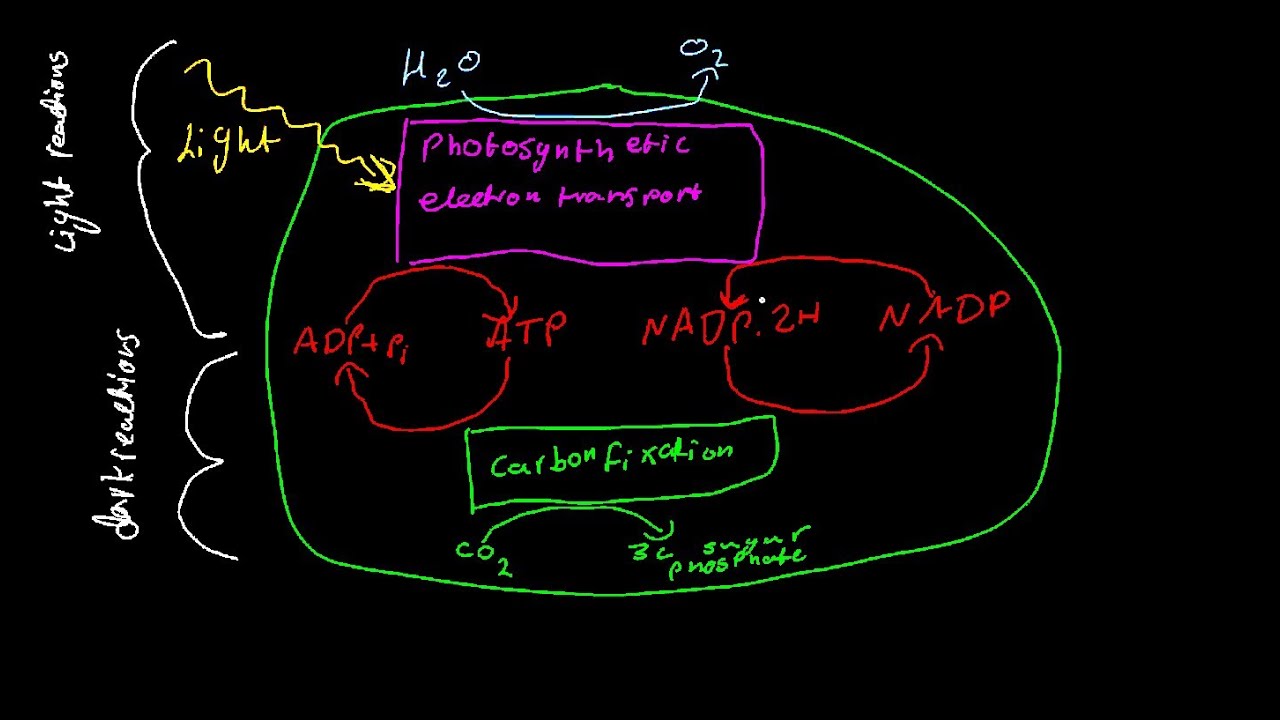 Light reactions
H2O
O2
Light
Photosynthetic
electron transport
ADP+Pi
ATP
NADP.2H
NADP
dark reactions
Carbon fixation
CO2
3C sugar
phosphate